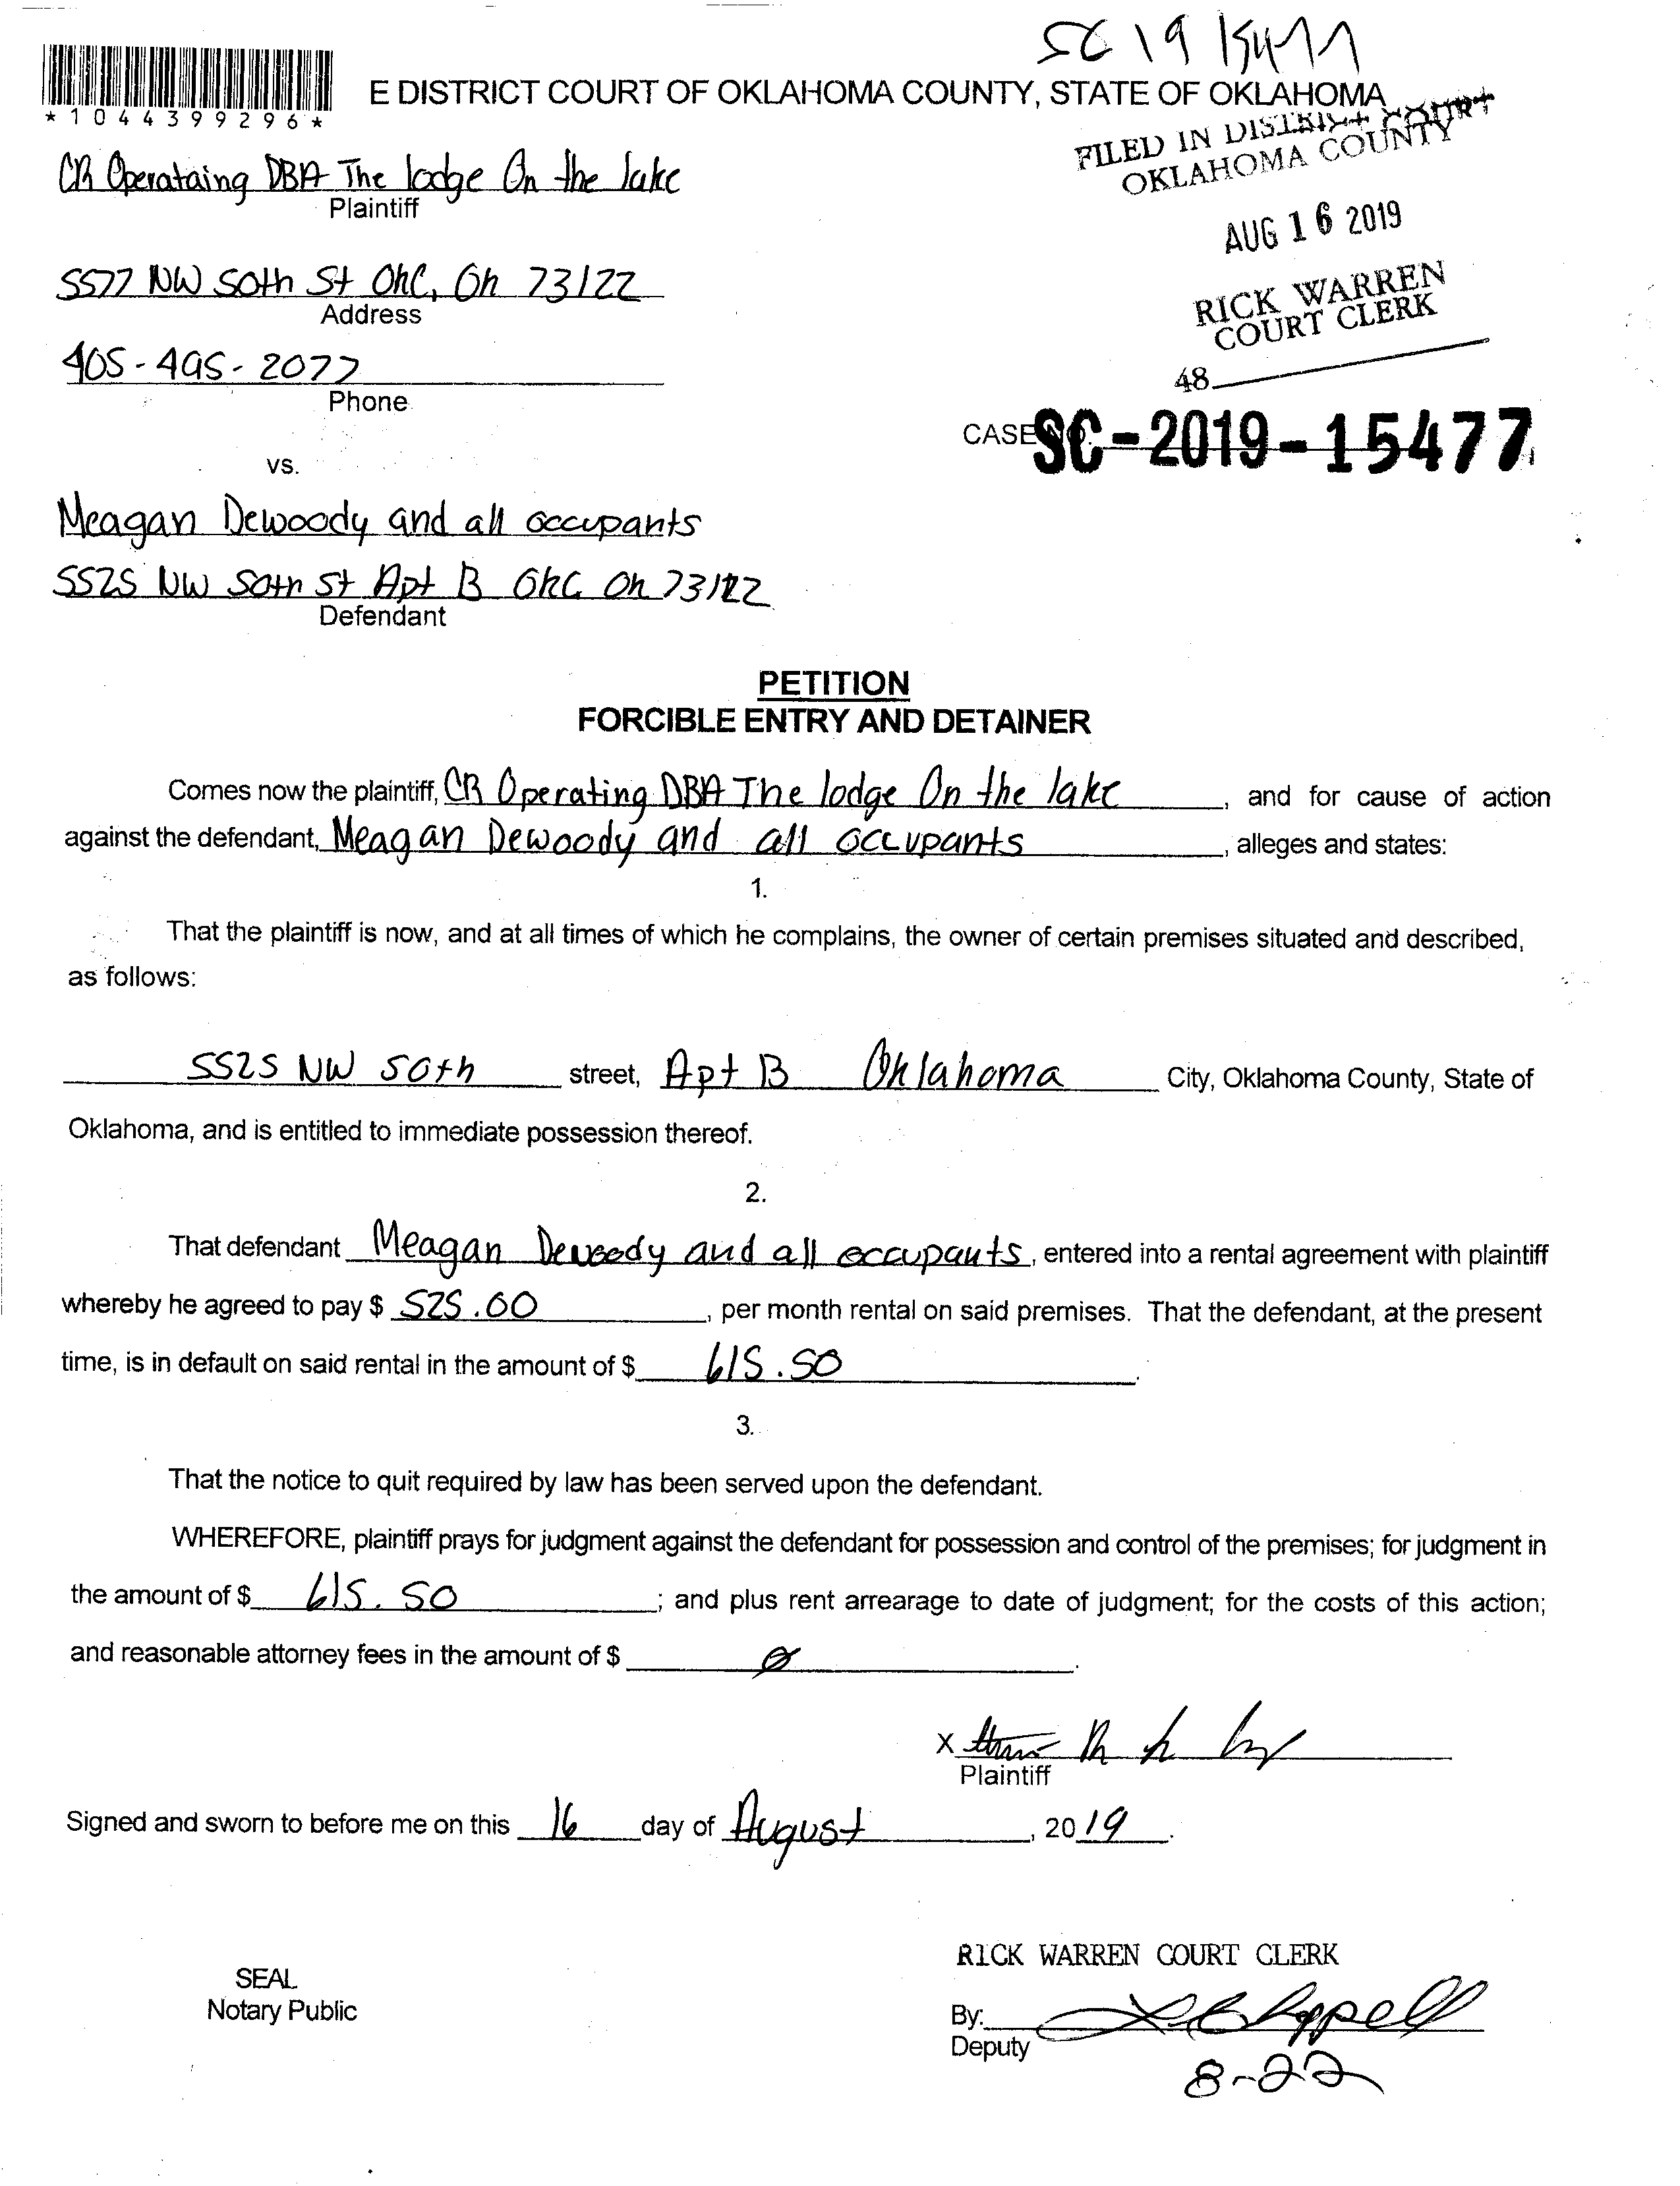 SC 19 15477
E DISTRICT COURT OF OKLAHOMA COUNTY, STATE OF OKLAHOMA
*1044399296*
FILED IN DISTRICT COURT
OKLAHOMA COUNTY
CR Operataing DBA The lodge On the lake
Plaintiff
AUG 16 2019
5577 NW 50th St OKC, OK 73122
Address
RICK WARREN
COURT CLERK
405-495-2077
Phone
48
CASE NO. SC-2019-15477
vs.
Meagan Dewoody and all occupants
5525 NW 50th St Apt B OKC OK 73122
Defendant
PETITION
FORCIBLE ENTRY AND DETAINER
Comes now the plaintiff, CR Operating DBA The lodge On the lake, and for cause of action
against the defendant, Meagan Dewoody and all occupants, alleges and states:
1.
That the plaintiff is now, and at all times of which he complains, the owner of certain premises situated and described,
as follows:
5525 NW 50th street, Apt B Oklahoma City, Oklahoma County, State of
Oklahoma, and is entitled to immediate possession thereof.
2.
That defendant Meagan Dewoody and all occupants, entered into a rental agreement with plaintiff
whereby he agreed to pay $ 525.00, per month rental on said premises. That the defendant, at the present
time, is in default on said rental in the amount of $ 615.50.
3.
That the notice to quit required by law has been served upon the defendant.
WHEREFORE, plaintiff prays for judgment against the defendant for possession and control of the premises; for judgment in
the amount of $ 615.50; and plus rent arrearage to date of judgment; for the costs of this action;
and reasonable attorney fees in the amount of $ Ø.
X
Plaintiff
Signed and sworn to before me on this 16 day of August, 2019.
RICK WARREN COURT CLERK
SEAL
Notary Public
By:
Deputy
8-22